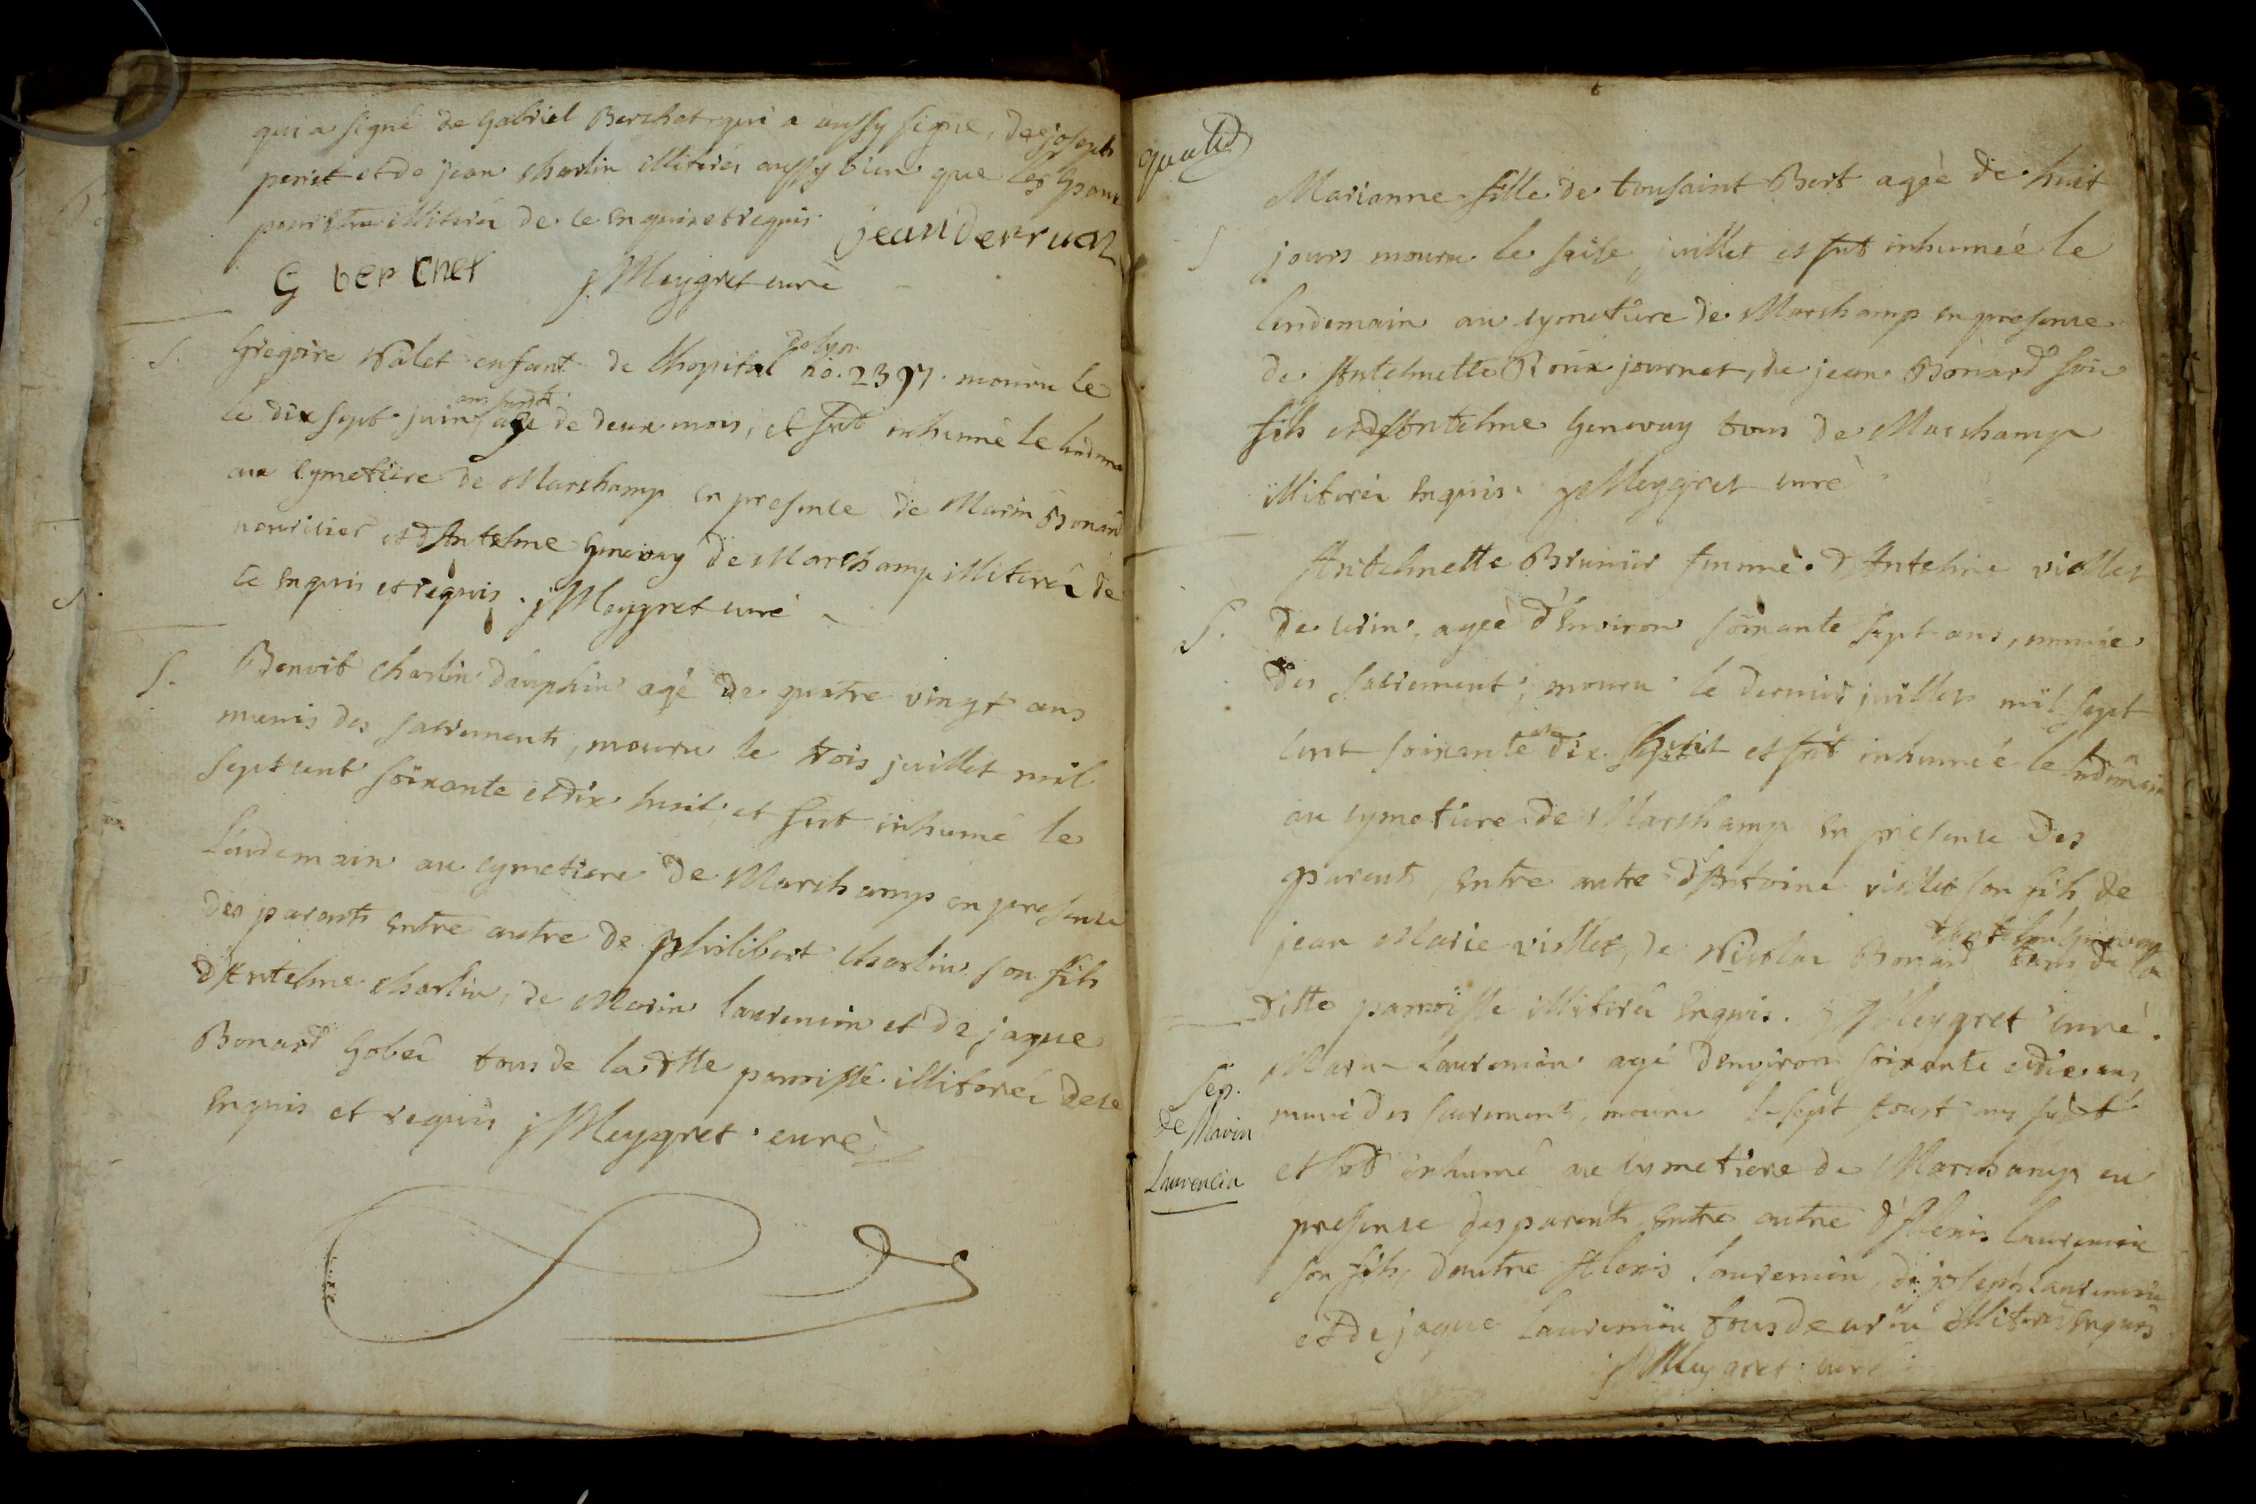 qui a signé de Gabriel Berchet qui a aussy signe, de joseph
peret et de jean charlin illiterés aussy bien que les Epoux
pour etre illiteré de ce enquis et requis. jean derruaz
G berchet j Meygret curé
S. Gregoire Valet enfant de lhopital de lyon no. 2397. mouru le
le dix sept juin an susdt agé de deux mois, et fut inhumé le lendemain
au cymetiere de Marchamp en presence de Marin Bonard
nouricier et dAntelme Genevay de Marchamp illiterés de
ce enquis et requis. j Meygret curé
S. Benoit charlin dauphin agé de quatre vingt ans
munis des sacrements, mouru le trois juillet mil
sept cent soixante et dix huit et fut inhumé le
lendemain au cymetiere de Marchamp en presence
des parents entre autre de philibert charlin son fils
dAntelme charlin, de Marin laurencin et de jaque
Bonard Gobet tous de la dtte paroisse illiterés de ce
enquis et requis j Meygret curé
Marianne fille de tousaint Bert agée de huit
S jours mouru le saise juillet et fut inhumée le
lendemain au cymetiere de Marchamp en presence
de Antelmette Roux journet, de jean Bonard son
fils et dAntelme Genevay tous de Marchamp
illiterés enquis. j Meygret curé
Antelmette Brunier femme dAntelme viollet
S. de cerin, agée d'Environ soixante sept ans, munie
des sacrement, mouru le dernier juillet mil sept
cent soixante et dix huit et fut inhumée le lendemain
au cymetiere de Marchamp en presence des
parents, entre autre dAntoine viollet son fils de
jean Marie viollet, de Nicolas Bonard dAntelme Genevay tous de la
ditte paroisse illiterés enquis. j Meygret curé.
Sep. de Marin Laurencin
Marin Laurencin agé d'environ soixante et dix ans
muni des sacrements, mouru le sept aoust an susdt
et fut inhumé au cymetiere de Marchamp en
presence des parents entre autre dAlexis laurencin
son fils, dautre Alexis laurencin, de joseph laurencin
et de jaque Laurencin tous de cerin illiterés enquis
j Meygret curé